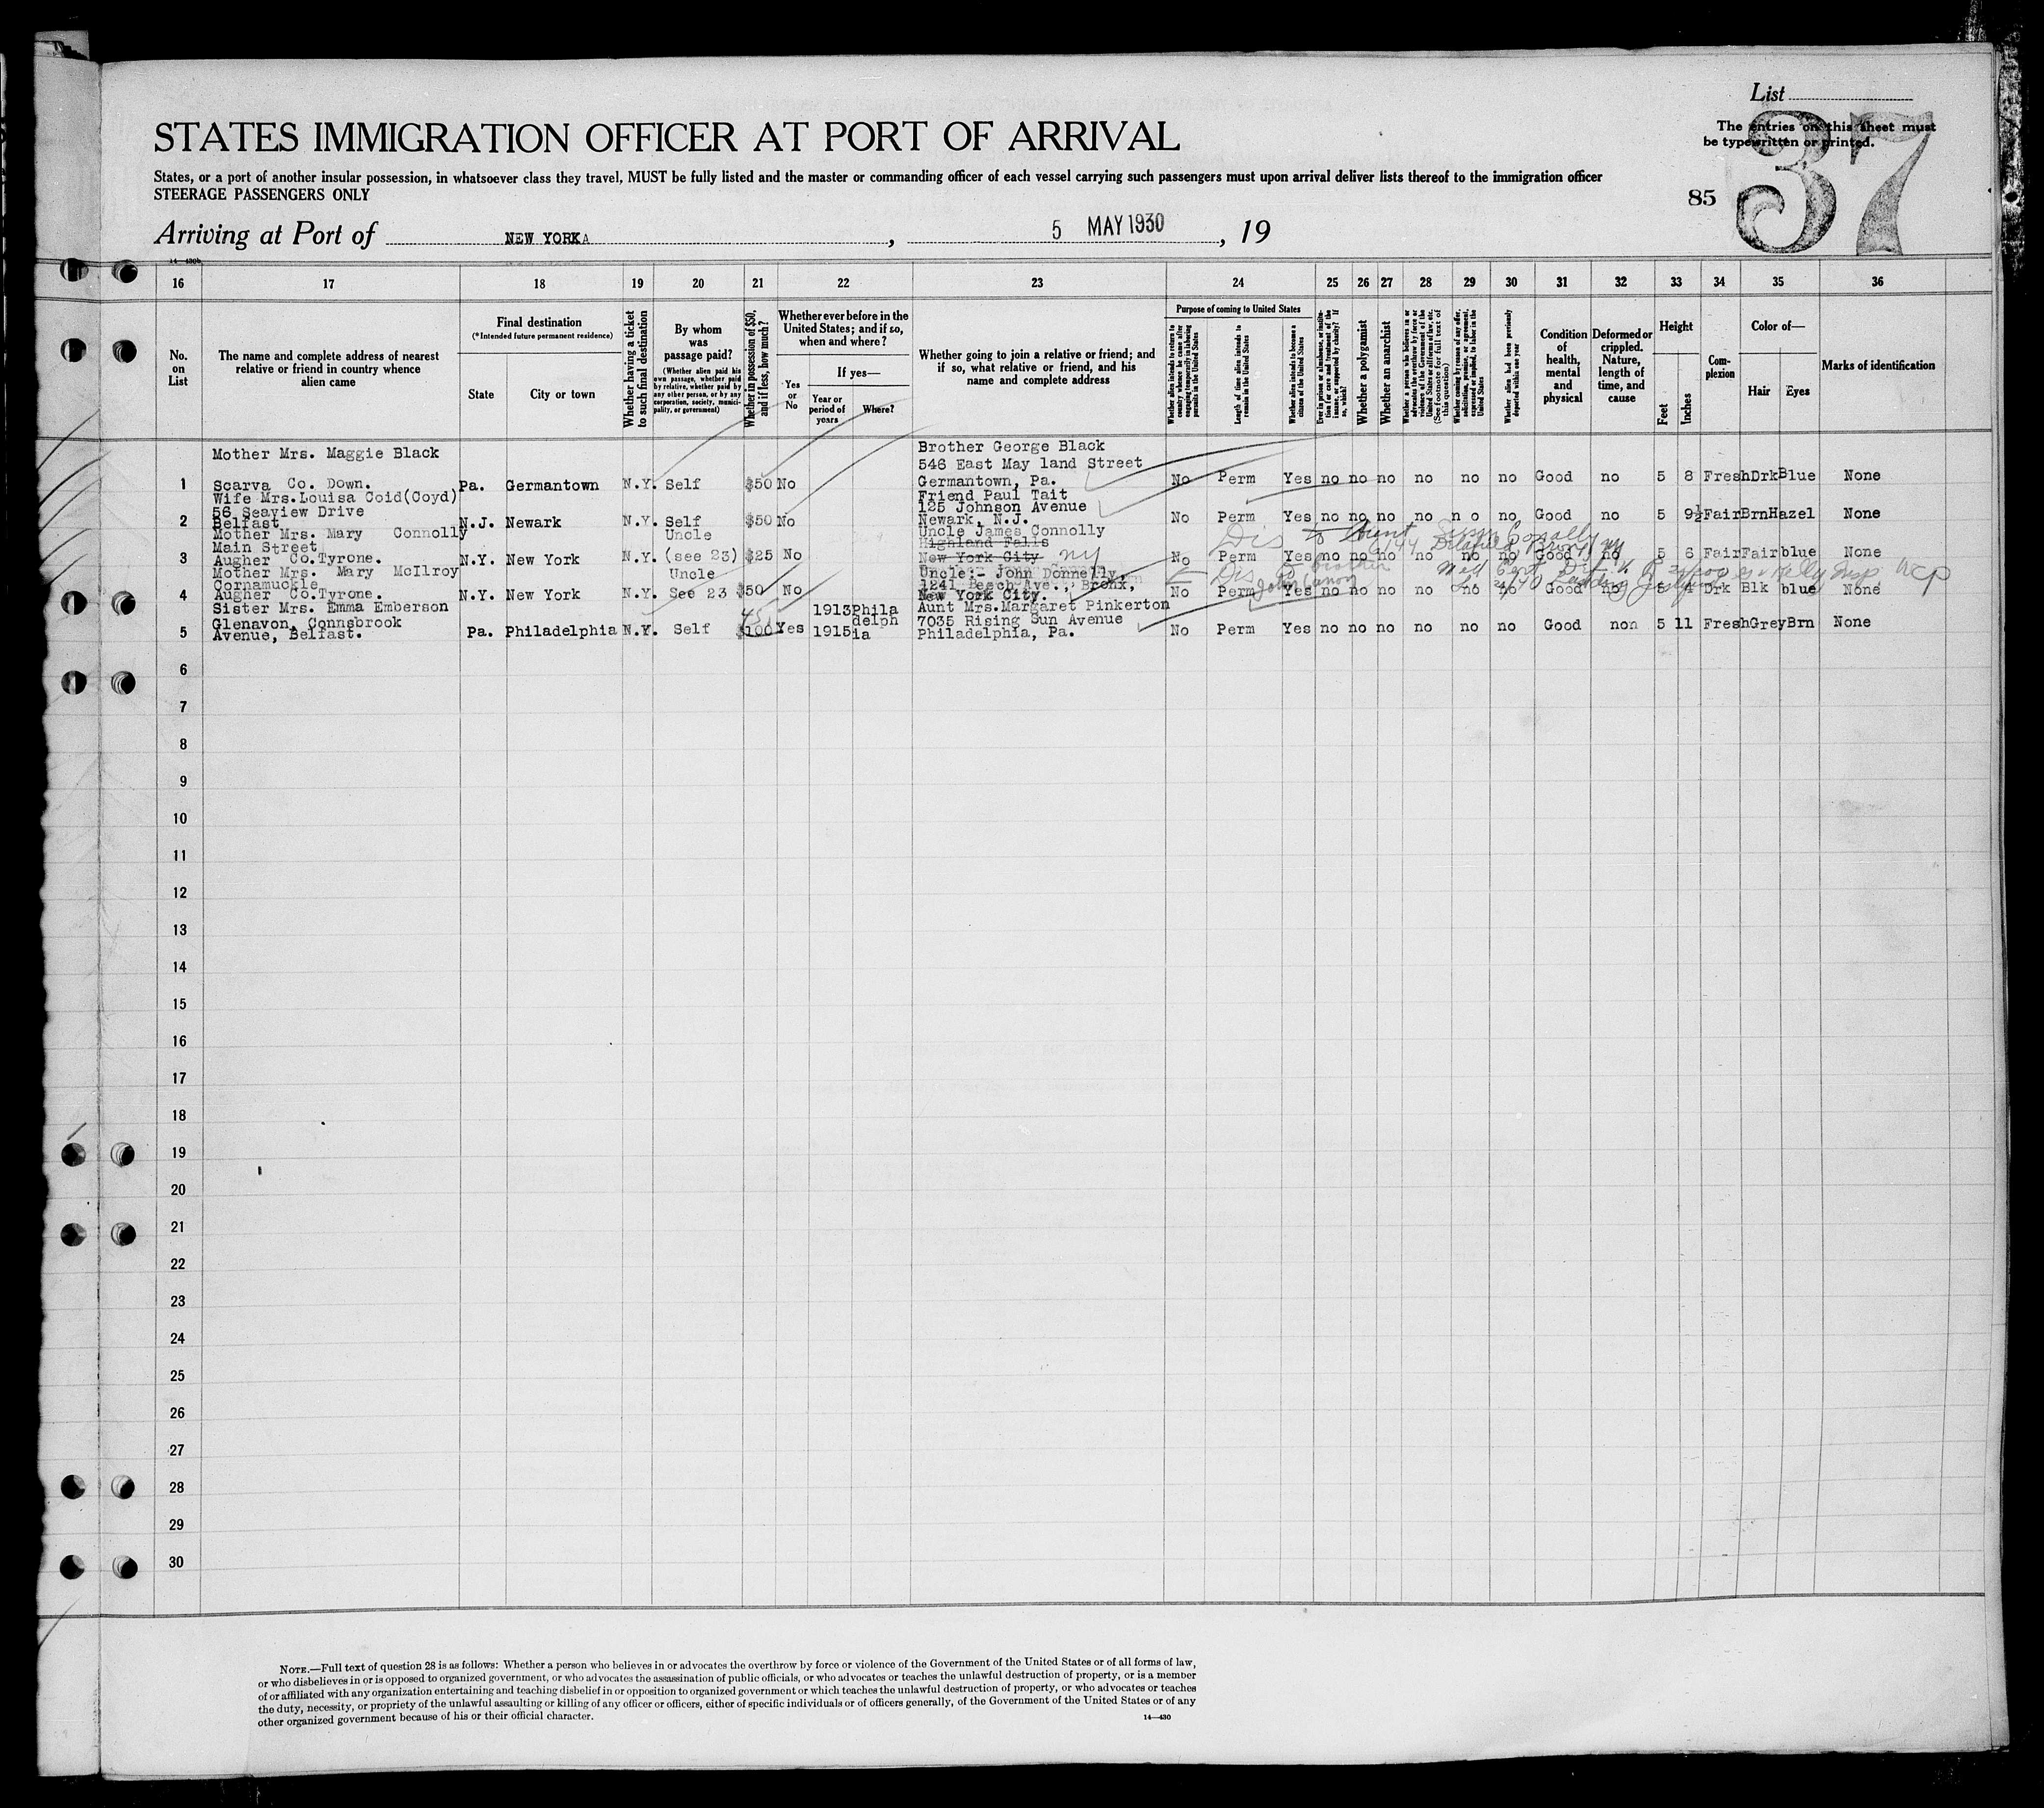 List
The entries on this sheet must
be typewritten or printed.
37
85
STATES IMMIGRATION OFFICER AT PORT OF ARRIVAL
States, or a port of another insular possession, in whatsoever class they travel, MUST be fully listed and the master or commanding officer of each vessel carrying such passengers must upon arrival deliver lists thereof to the immigration officer
STEERAGE PASSENGERS ONLY
Arriving at Port of NEW YORK , 5 MAY 1930 , 19
14—430b
16 17 18 19 20 21 22 23 24 25 26 27 28 29 30 31 32 33 34 35 36
No. on List
The name and complete address of nearest relative or friend in country whence alien came
Final destination
(*Intended future permanent residence)
State
City or town
Whether having a ticket to such final destination
By whom was passage paid?
(Whether alien paid his own passage, whether paid by relative, whether paid by any other person, or by any corporation, society, municipality, or government)
Whether in possession of $50, and if less, how much?
Whether ever before in the United States; and if so, when and where?
Yes or No
If yes—
Year or period of years
Where?
Whether going to join a relative or friend; and if so, what relative or friend, and his name and complete address
Purpose of coming to United States
Whether alien intends to return to country whence he came after engaging temporarily in laboring pursuits in the United States
Length of time alien intends to remain in the United States
Whether alien intends to become a citizen of the United States
Ever in prison or almshouse, or institution for care and treatment of the insane, or supported by charity? If so, which?
Whether a polygamist
Whether an anarchist
Whether a person who believes in or advocates the overthrow by force or violence of the Government of the United States or all forms of law, etc. (See footnote for full text of this question)
Whether coming by reason of any offer, solicitation, promise, or agreement, expressed or implied, to labor in the United States
Whether alien had been previously deported within one year
Condition of health, mental and physical
Deformed or crippled. Nature, length of time, and cause
Height
Feet
Inches
Complexion
Color of—
Hair
Eyes
Marks of identification
1 Mother Mrs. Maggie Black
Scarva Co. Down. Pa. Germantown N.Y. Self $50 No
Brother George Black
546 East May land Street
Germantown, Pa. No Perm Yes no no no no no no Good no 5 8 Fresh Drk Blue None
2 Wife Mrs.Louisa Coid(Coyd)
56 Seaview Drive
Belfast N.J. Newark N.Y. Self $50 No
Friend Paul Tait
125 Johnson Avenue
Newark, N.J. No Perm Yes no no no no n o no Good no 5 9½ Fair Brn Hazel None
3 Mother Mrs. Mary Connolly
Main Street
Augher Co.Tyrone. N.Y. New York N.Y. Uncle (see 23) $25 No
Uncle James Connolly
Highland Falls
New York City ny No Perm Yes no no no no no no Good no 5 6 Fair Fair blue None
Dis to Aunt
4 Mother Mrs. Mary McIlroy
Cornamuckle
Augher Co.Tyrone. N.Y. New York N.Y. Uncle See 23 $50 No
Uncle:- John Donnelly,
1241 Beech Ave., Bronx,
New York City. No Perm Yes no no Good no Drk Blk blue None
Dis to brother
5 Sister Mrs. Emma Emberson
Glenavon, Connsbrook
Avenue, Belfast. Pa. Philadelphia N.Y. Self $100 Yes 1913 1915 Philadelphia
Aunt Mrs.Margaret Pinkerton
7035 Rising Sun Avenue
Philadelphia, Pa. No Perm Yes no no no no no no Good non 5 11 Fresh Grey Brn None
6
7
8
9
10
11
12
13
14
15
16
17
18
19
20
21
22
23
24
25
26
27
28
29
30
NOTE.—Full text of question 28 is as follows: Whether a person who believes in or advocates the overthrow by force or violence of the Government of the United States or of all forms of law,
or who disbelieves in or is opposed to organized government, or who advocates the assassination of public officials, or who advocates or teaches the unlawful destruction of property, or is a member
of or affiliated with any organization entertaining and teaching disbelief in or opposition to organized government or which teaches the unlawful destruction of property, or who advocates or teaches
the duty, necessity, or propriety of the unlawful assaulting or killing of any officer or officers, either of specific individuals or of officers generally, of the Government of the United States or of any
other organized government because of his or their official character.
14—430